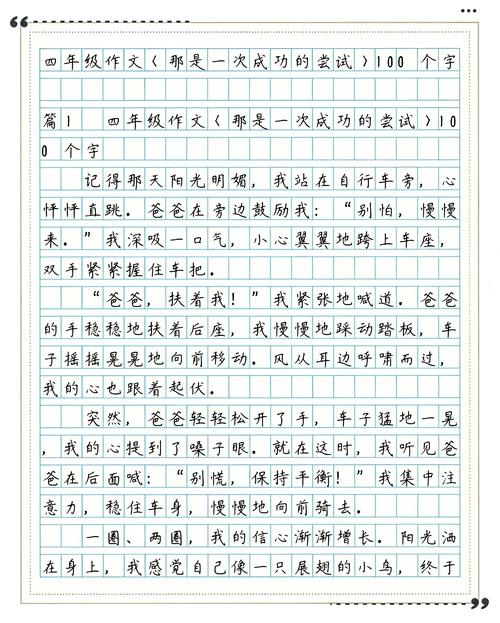 四年级作文《那是一次成功的尝试》100 个字
篇1 四年级作文《那是一次成功的尝试》10
0 个字
记得那天阳光明媚，我站在自行车旁，心
怦怦直跳。爸爸在旁边鼓励我：“别怕，慢慢
来。”我深吸一口气，小心翼翼地跨上车座，
双手紧紧握住车把。
“爸爸，扶着我！”我紧张地喊道。爸爸
的手稳稳地扶着后座，我慢慢地踩动踏板，车
子摇摇晃晃地向前移动。风从耳边呼啸而过，
我的心也跟着起伏。
突然，爸爸轻轻松开了手，车子猛地一晃
，我的心提到了嗓子眼。就在这时，我听见爸
爸在后面喊：“别慌，保持平衡！”我集中注
意力，稳住车身，慢慢地向前骑去。
一圈、两圈，我的信心渐渐增长。阳光洒
在身上，我感觉自己像一只展翅的小鸟，终于